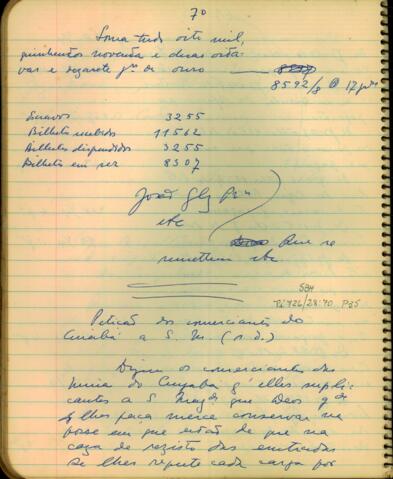 70
Soma tudo oito mil,
quinhentos noventa e duas oita-
vas e dezasete gr.s de ouro
8592/8 @ 17 gr.s
Escravos 3255
Bilhetes recebidos 11562
Bilhetes dispendidos 3255
Bilhetes em ser 8307
João Glz Pra
etc
Que se
remettem etc
Petição dos comerciantes do
Cuiabá a S. M. (s. d.)
Dizem os comerciantes das
minas do Cuyabá q' elles supli-
cantes a S Mag.de que Deos g.de
lhes faça merce conservar na
posse em que estão de que na
caza de rezisto das entradas
se lhes repute cada carga por